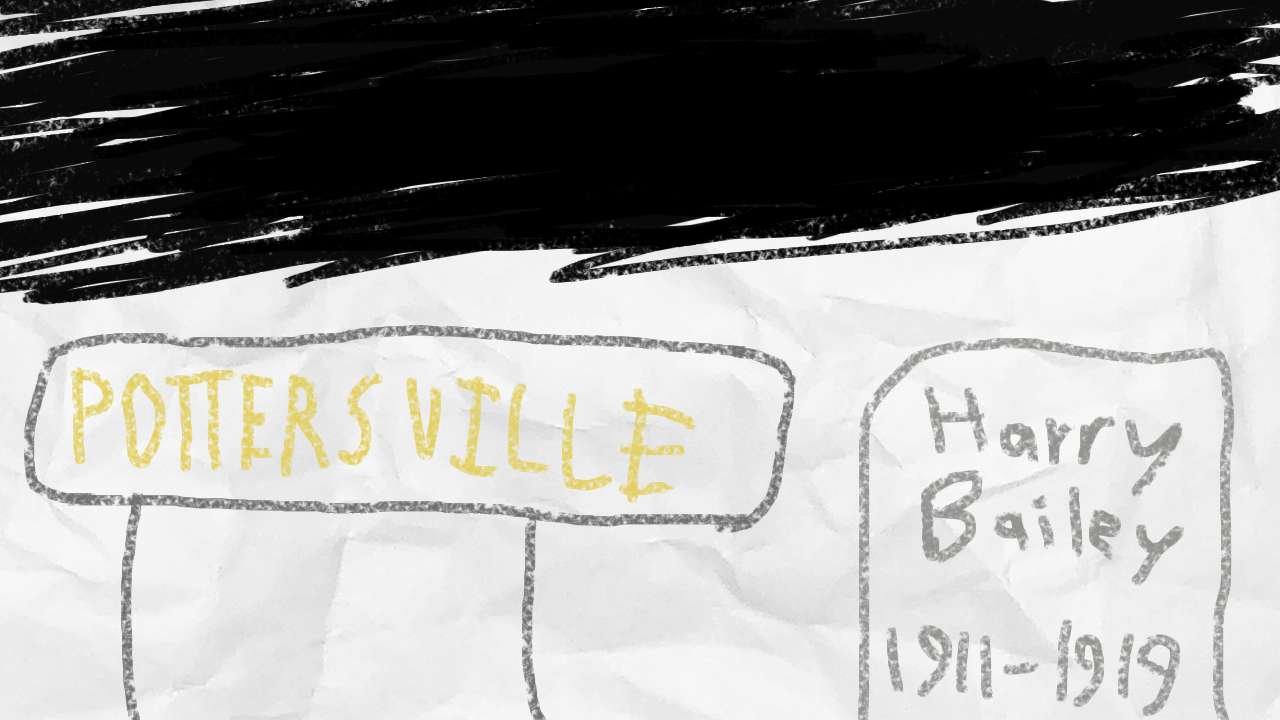 POTTERSVILLE
Harry
Bailey
1911-1919